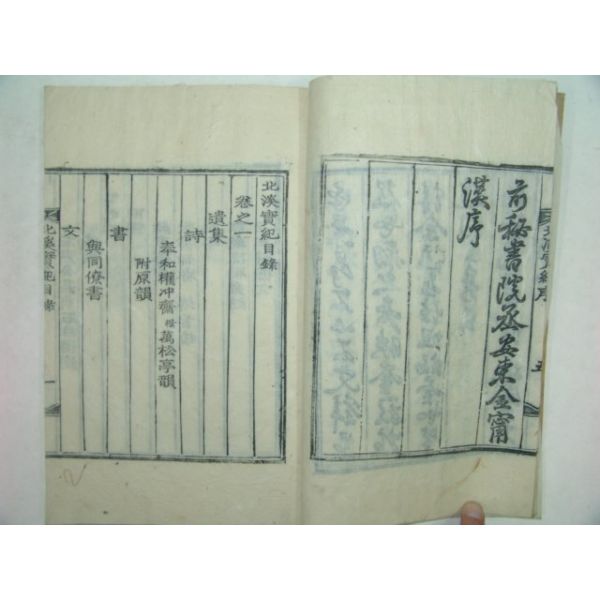 前秘書院丞安東金甯
漢序
北溪實紀序
五
北溪實紀目錄
卷之一
遺集
詩
奉和權冲齋橃萬松亭韻
附原韻
書
與同僚書
文
北溪實紀目錄
一